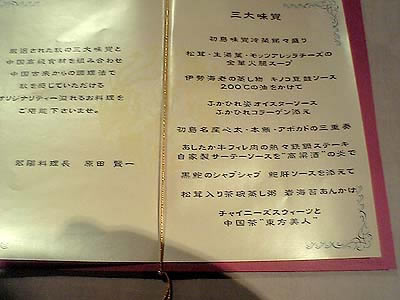 厳選された秋の三大味覚と
中国高級食材を組み合わせ
中国古来からの調理法で
秋を感じていただける
オリジナリティー溢れるお料理を
ご堪能下さいませ。
料理長 原田 賢一
三大味覚
初島味覚冷菜彩々盛り
松茸・生湯葉・モッツアレッラチーズの
金華火腿スープ
伊勢海老の蒸し物 キノコ豆鼓ソース
200℃の油をかけて
ふかひれ姿オイスターソース
ふかひれコラーゲン添え
初島名産心太・本鮪・アボカドの三重奏
あしたか牛フィレ肉の熱々鉄鍋ステーキ
自家製サーテーソースを"高粱酒"の炎で
黒鮑のシャブシャブ 鮑肝ソースを添えて
松茸入り茶碗蒸し粥 岩海苔あんかけ
チャイニーズスウィーツと
中国茶"東方美人"